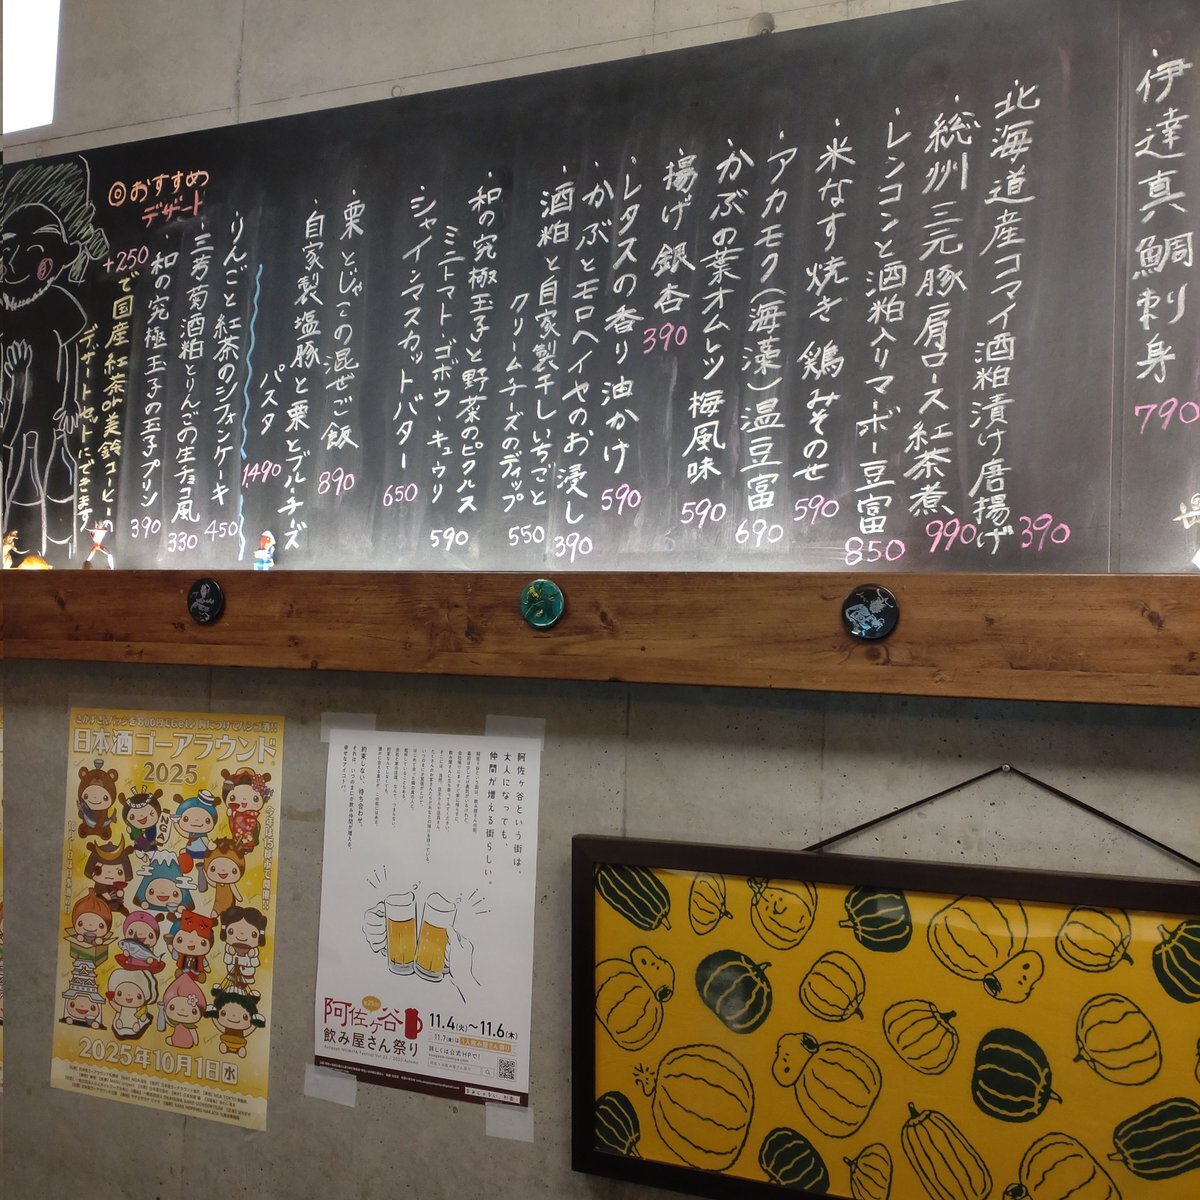 伊達真鯛刺身 790
・北海道産コマイ酒粕漬け唐揚げ 390
・総州三元豚肩ロース紅茶煮 990
・レンコンと酒粕入りマーボー豆富 850
・米なす焼き 鶏みそのせ 590
・アカモク(海藻)温豆富 690
・かぶの葉オムレツ梅風味 590
・揚げ銀杏 390
・レタスの香り油かけ 590
・かぶとモロヘイヤのお浸し 390
・酒粕と自家製干しいちごと
クリームチーズのディップ 550
・和の究極玉子と野菜のピクルス
ミニトマト ゴボウ キュウリ 590
・シャインマスカットバター 650
・栗とじゃこの混ぜご飯 890
・自家製塩豚と栗とブルーチーズ
パスタ 1,490
◎おすすめ
デザート
・りんごと紅茶のシフォンケーキ 450
・三芳菊酒粕とりんごの生チョコ風 330
・和の究極玉子の玉子プリン 390
+250で国産紅茶or美鈴コーヒーの
デザートセットにできます
日本酒ゴーアラウンド
2025
今年は15都市で開催!!
2025年10月1日水
阿佐ヶ谷という街は、
大人になっても
仲間が増える街らしい。
約束しない、待ち合わせ。
それは、いつのまにか飲み仲間が増える、
幸せなアイコトバ。
阿佐ヶ谷
飲み屋さん祭り
11.4(火)〜11.6(木)
11.7(金)は1人飲み屋さん祭り
詳しくは公式HPで!